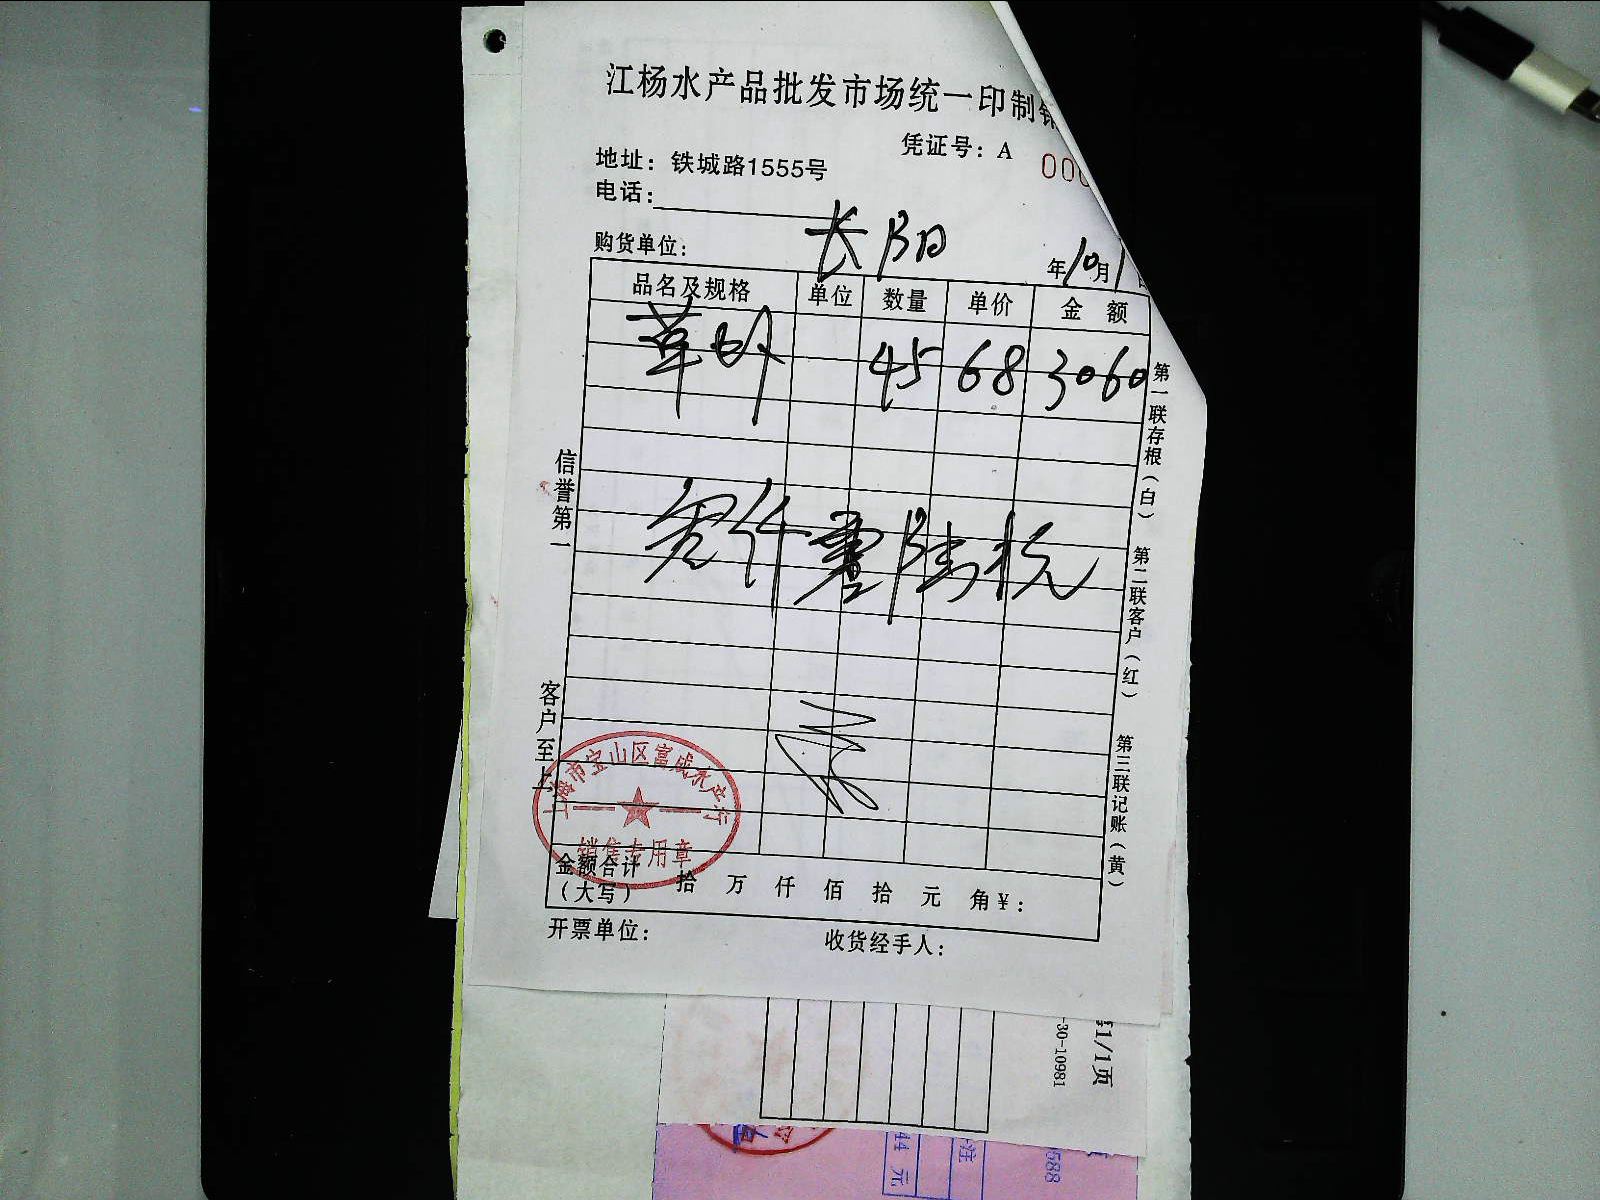 江杨水产品批发市场统一印制销
凭证号：A 000
地址：铁城路1555号
电话：
购货单位： 长阳 年10月1
品名及规格 单位 数量 单价 金 额
草 45 68 3060
仟零陆拾元
信誉第一
客户至上
第一联存根（白） 第二联客户（红） 第三联记账（黄）
上海市宝山区富成水产行
销售专用章
金额合计
（大写） 拾 万 仟 佰 拾 元 角 ¥：
开票单位： 收货经手人：
第1/1页
-30-10981
44 元
注
6588